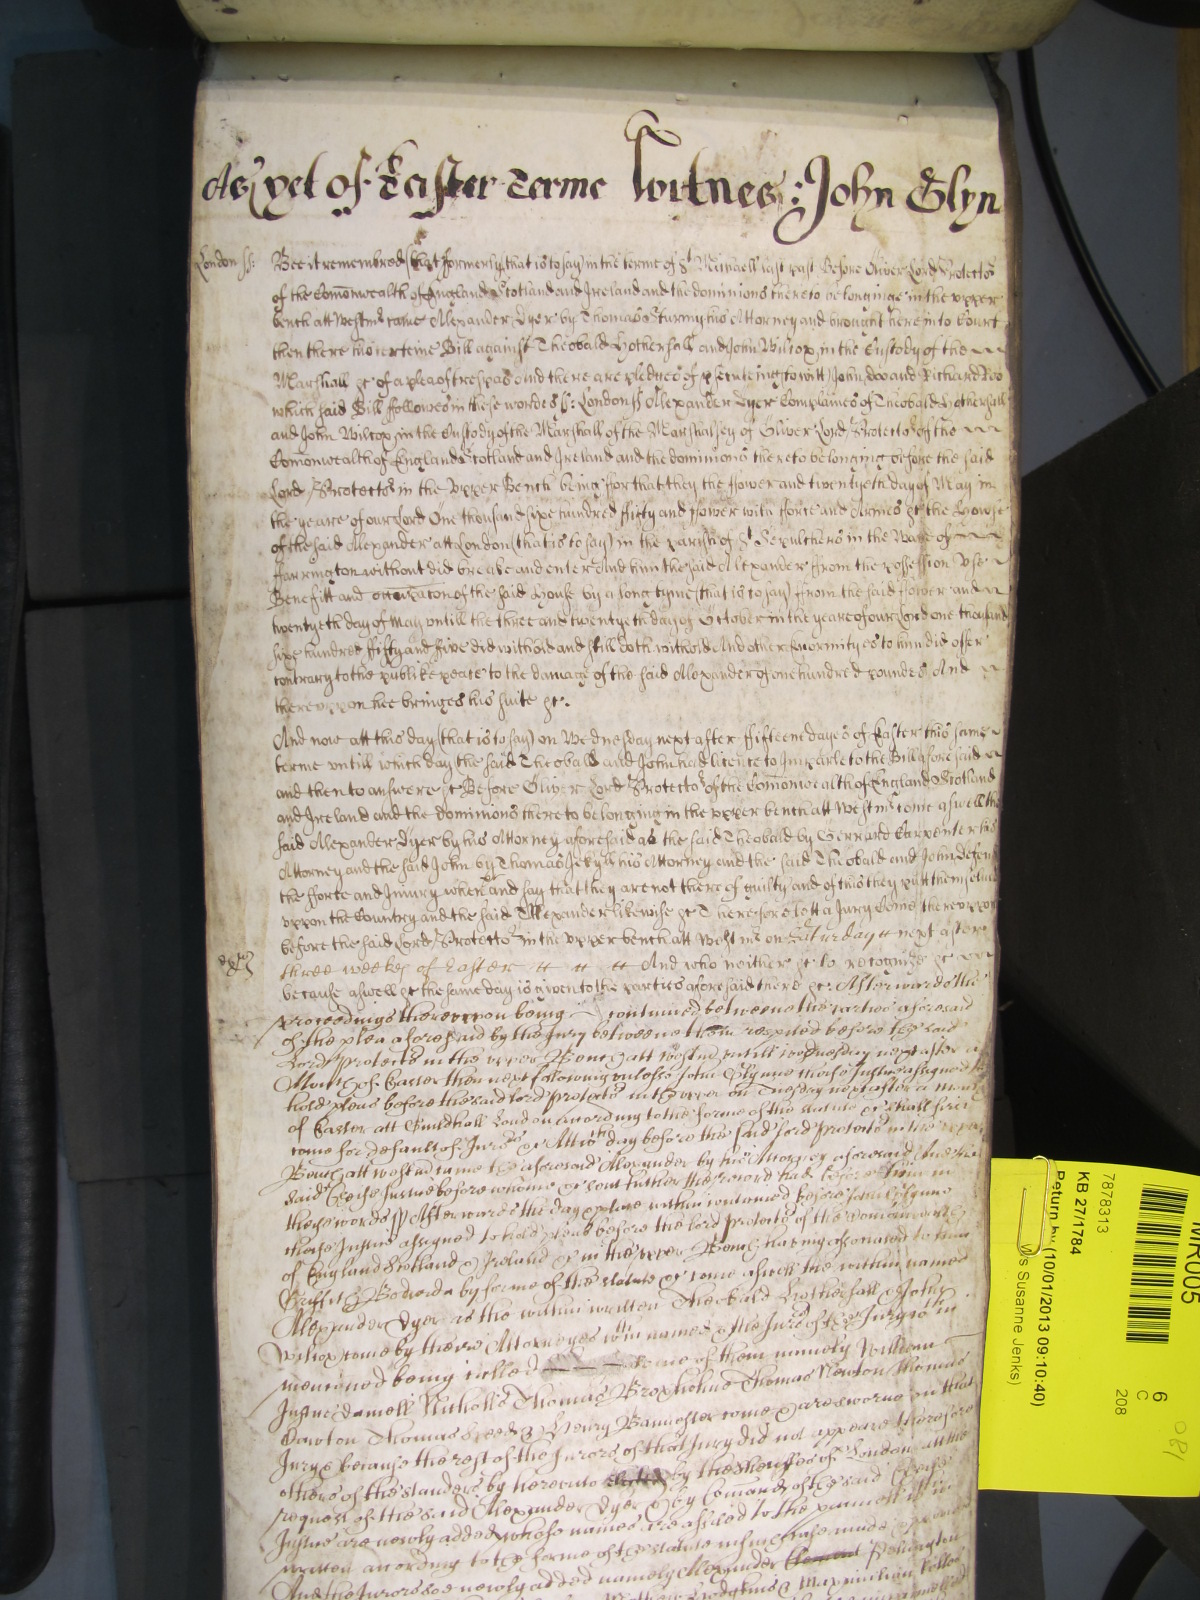 As yet of Easter Terme Witnes: John Glyn
London ss: Bee it remembred that formerly that is to say in the terme of St Michaell last past Before Oliver Lord Protector
of the Comonwealth of England Scotland and Ireland and the dominions thereto belonginge in the upper
bench att Westmr came Alexander Dyer by Thomas Turmy his Attorney and brought here into Court
then there his certeine Bill against Theobald Hothersall and John Wilcox in the Custody of the
Marshall &c of a plea of trespas And there are pledges of prosecuteing to witt John Doo and Richard Roo
which said Bill followes in these wordes ss: London ss Alexander Dyer Complaines of Theobald Hothersall
and John Wilcox in the Custody of the Marshall of the Marshalsey of Oliver Lord Protector of the
Comonwealth of England Scotland and Ireland and the dominions thereto belonging before the said
Lord Protector in the Upper Bench being for that they the ffower and twentyeth day of May in
the yeare of our Lord One thousand sixe hundred ffifty and ffower with fforce and Armes &c the Howse
of the said Alexander att London (that is to say) in the parish of St Sepulchers in the Ward of
ffarrington without did breake and enter And him the said Alexander ffrom the possession Use
Benefitt and occupacon of the said House by a long tyme (that is to say) ffrom the said ffower and
twentyeth day of May untill the three and twentyeth day of October in the yeare of our Lord one thousand
sixe hundred ffifty and ffive did withold and still doth withold And other Enormityes to him did offer
contrary to the publike peace to the damage of the said Alexander of one hundred poundes And
thereuppon hee bringes his suite &c.
And now att this day (that is to say) on Wednesday next after ffifteen dayes of Easter this same
terme untill which day the said Theobald and John had licence to Imparle to the Bill aforesaid
and then to answere &c Before Oliver Lord Protector of the Comonwealth of England Scotland
and Ireland and the dominions thereto belonging in the upper bench att Westmr come aswell the
said Alexander Dyer by his Attorney aforesaid as the said Theobald by Gerrard Carpenter his
Attorney and the said John by Thomas Jekyll his Attorney and the said Theobald and John Defend
the fforce and Injury when &c and say that they are not thereof guilty and of this they putt themselves
uppon the Country and the said Alexander likewise &c Therefore lett a Jury Come thereuppon
before the said Lord Protector in the upper bench att Westmr on Saturday next after
three weekes of Easter And who neither &c to recognize &c
because aswell &c the same day is given to the parties aforesaid there &c. Afterwards the
proceedings thereuppon being continued betweene the parties aforesaid
of the plea aforesaid by the Jury betweene them respited before the said
Lord Protector in the upper Bench att Westmr untill Wednesday next after a
Month of Easter then next following unlesse John Glynne Cheife Justice assigned to
hold pleas before the said lord Protector in the upper on Tuesday next after a month
of Easter att Guildhall London according to the forme of the statute &c shall first
come for default of Jurors &c Att which day before the said lord Protector in the upper
Bench att Westmr came the aforesaid Alexander by his Attorney aforesaid And the
said Cheife Justice before whome &c sent hither the record had before him in
these words ss Afterwards the day & place within contained before John Glynne
Cheife Justice assigned to hold pleas before the lord Protector of the Comonwealth
of England Scotland & Ireland &c in the upper Bench having associated to him
Griffith Bodurda by forme of the statute &c come aswell the within named
Alexander Dyer as the within written Theobald Hothersall & John
Wilcox come by there Attorneyes within named & the Jurors of the Jury within
mentioned being called some of them namely William
Justice Daniell Nicholls Thomas Broxholme Thomas Newton Thomas
Dawton Thomas Creed & Henry Bannester come & are sworne on that
Jury & because the rest of the Jurors of that Jury did not appeare therefore
others of the standers by hereunto by the Sheriffes of London att the
request of the said Alexander Dyer & by Comand of the said Cheife
Justice are newly added whose names are affiled to the pannell within
written according to the forme of the statute in such case made & provided
And the Jurors soe newly added namely Alexander Pellington
Mathew Hodgkins Maximilian
MR005
6
C
208
7878313
KB 27/1784
Return by (10/01/2013 09:10:40)
Ms Susanne Jenks)